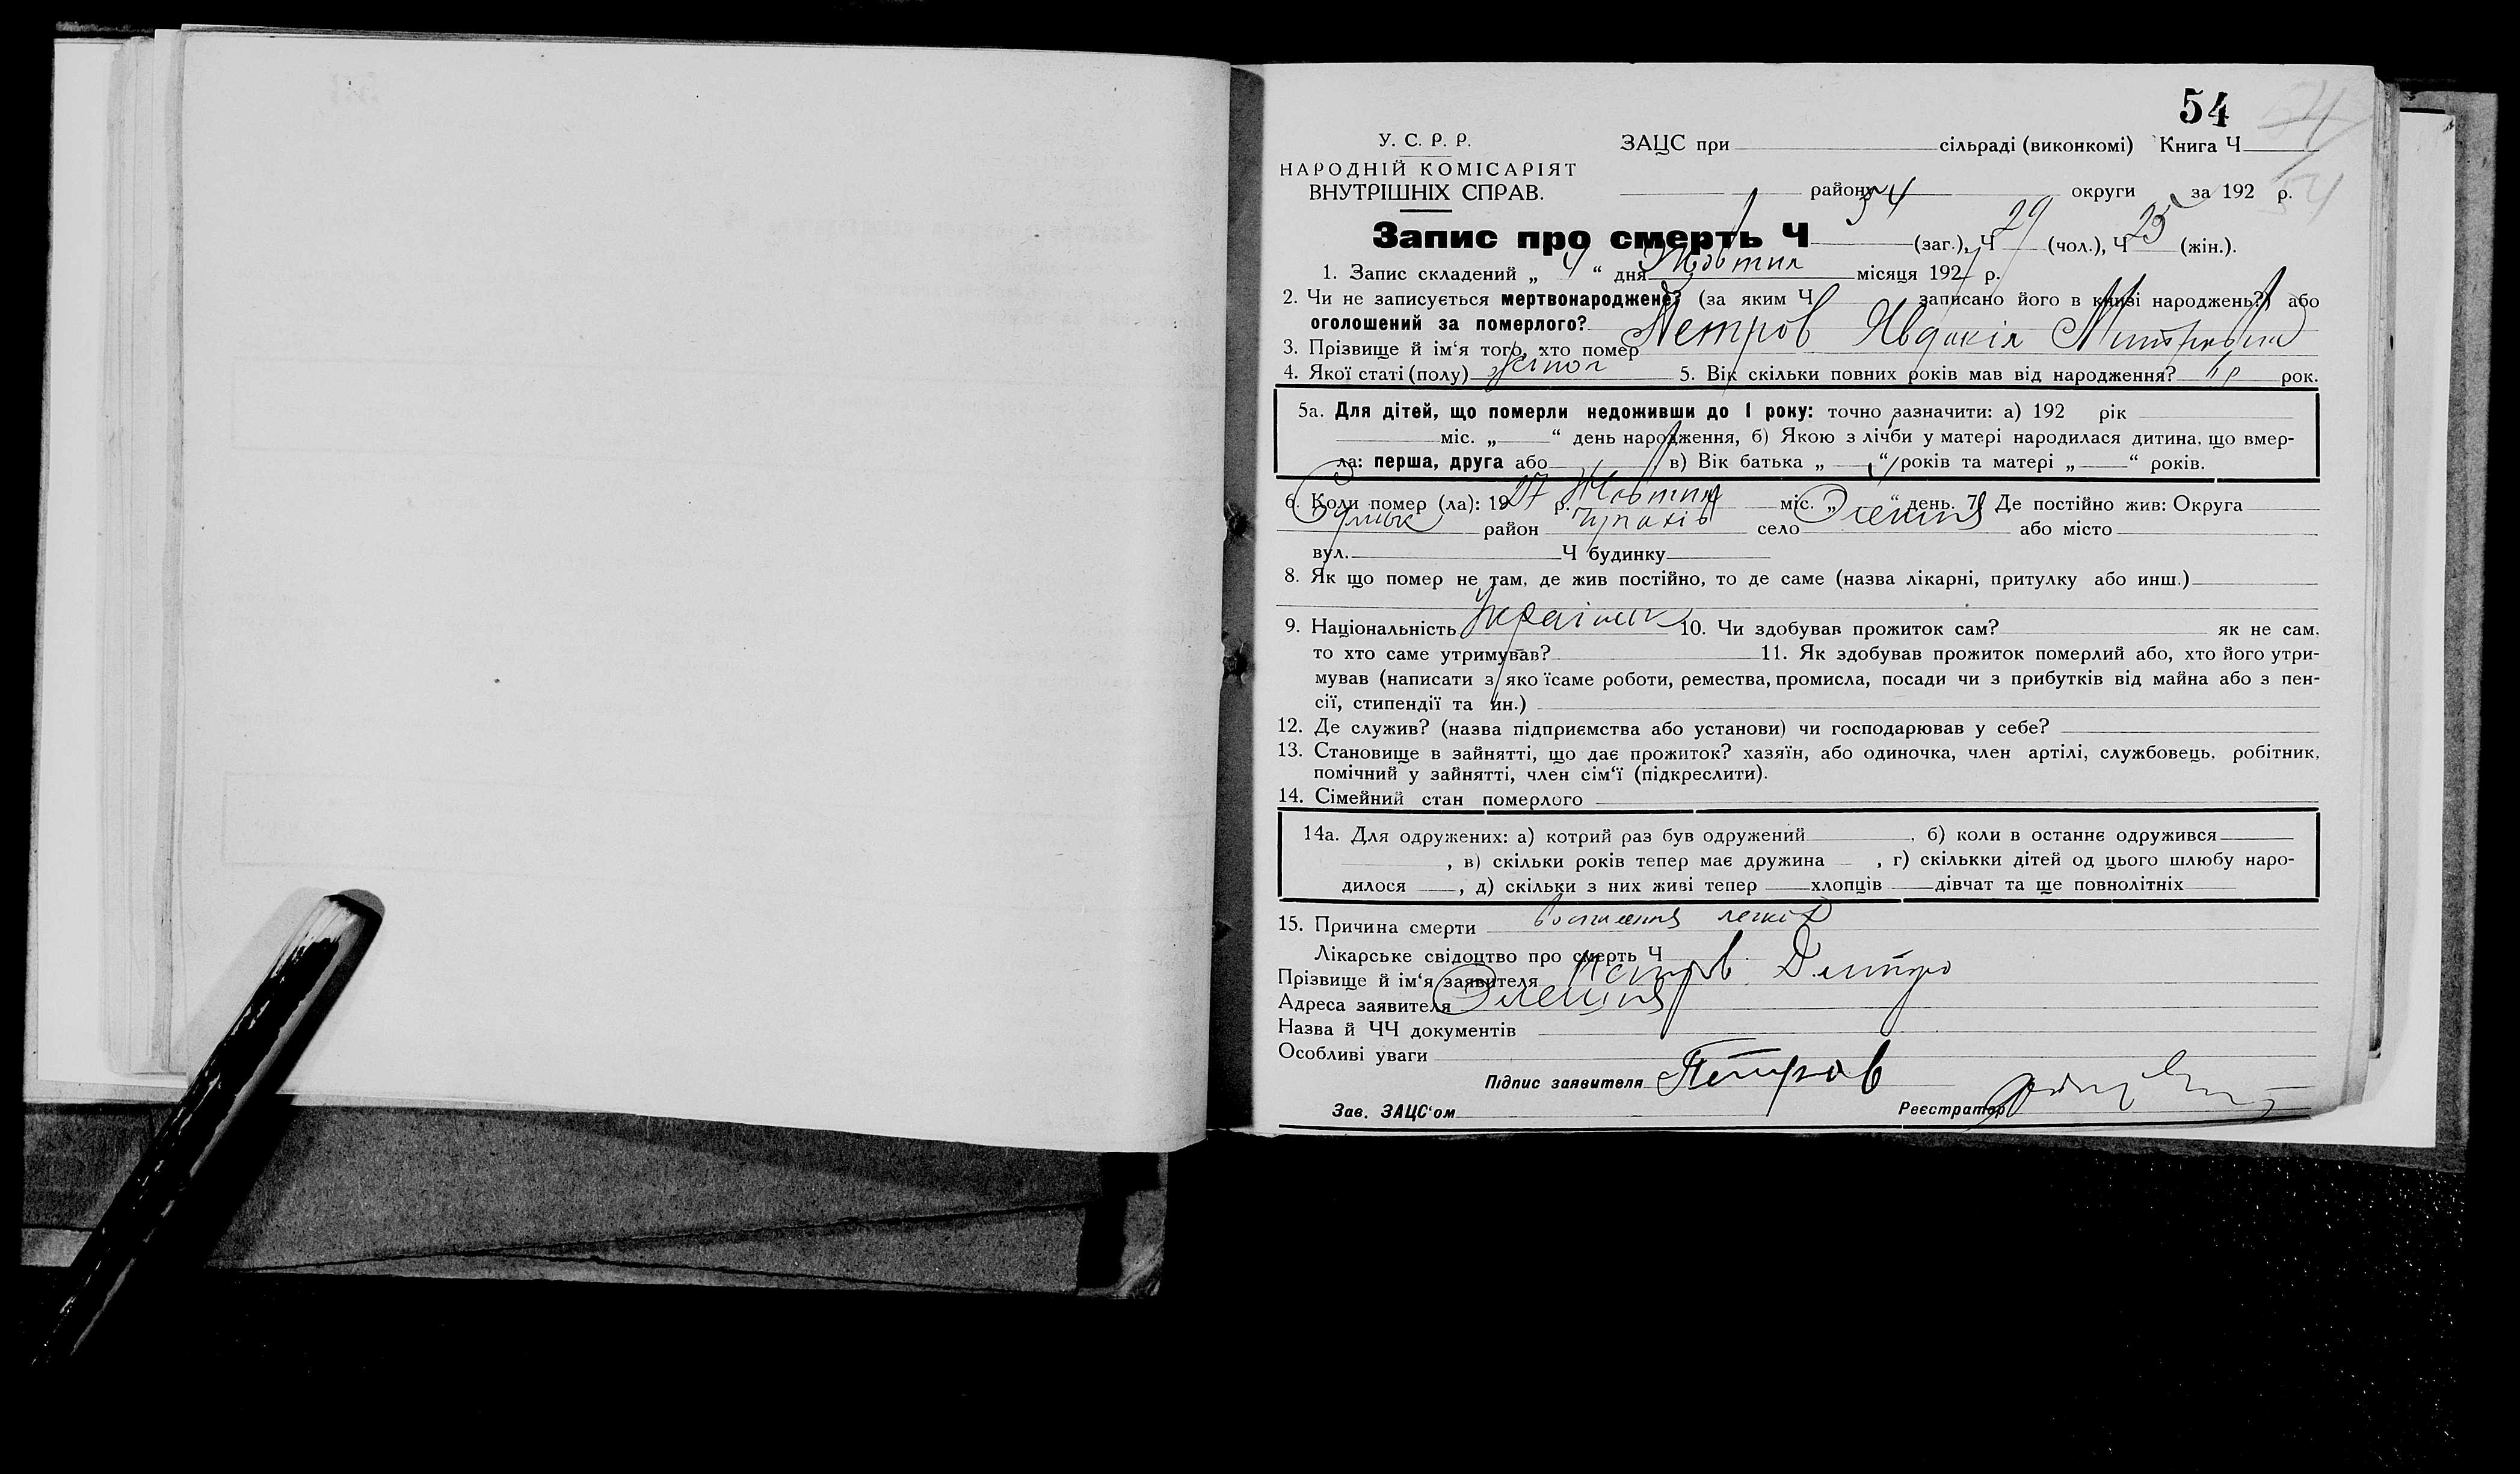 54
У. С. Р. Р.
НАРОДНІЙ КОМІСАРІЯТ
ВНУТРІШНІХ СПРАВ.
ЗАЦС при сільраді (виконкомі) Книга Ч
району округи за 192 р.
Запис про смерть Ч 54 (заг.), Ч 29 (чол.), Ч 25 (жін.).
1. Запис складений „ 4 “ дня Жовтня місяця 1927 р.
2. Чи не записується мертвонароджене? (за яким Ч записано його в книзі народжень?) або
оголошений за померлого?
3. Прізвище й ім‘я того, хто помер Петров Явдокія
4. Якої статі (полу) жіноч 5. Вік скільки повних років мав від народження? рок.
5а. Для дітей, що померли недоживши до 1 року: точно зазначити: а) 192 рік
міс. „ “ день народження, б) Якою з лічби у матері народилася дитина, що вмер-
ла: перша, друга або в) Вік батька „ “ років та матері „ “ років.
6. Коли помер (ла): 1927 р. Жовтня міс. „ “ день. 7. Де постійно жив: Округа
Сумськ район Чупахів село або місто
вул. Ч будинку
8. Як що помер не там, де жив постійно, то де саме (назва лікарні, притулку або инш.)
9. Національність Українськ 10. Чи здобував прожиток сам? як не сам,
то хто саме утримував? 11. Як здобував прожиток померлий або, хто його утри-
мував (написати з яко їсаме роботи, ремества, промисла, посади чи з прибутків від майна або з пен-
сії, стипендії та ин.)
12. Де служив? (назва підприємства або установи) чи господарював у себе?
13. Становище в зайнятті, що дає прожиток? хазяїн, або одиночка, член артілі, службовець, робітник,
помічний у зайнятті, член сім‘ї (підкреслити).
14. Сімейний стан померлого
14а. Для одружених: а) котрий раз був одружений , б) коли в останнє одружився
, в) скільки років тепер має дружина , г) скількки дітей од цього шлюбу наро-
дилося , д) скільки з них живі тепер хлопців дівчат та ще повнолітніх
15. Причина смерти легких
Лікарське свідоцтво про смерть Ч
Прізвище й ім‘я заявителя Петров Дмитро
Адреса заявителя
Назва й ЧЧ документів
Особливі уваги
Підпис заявителя Петров
Зав. ЗАЦС‘ом Реєстратор